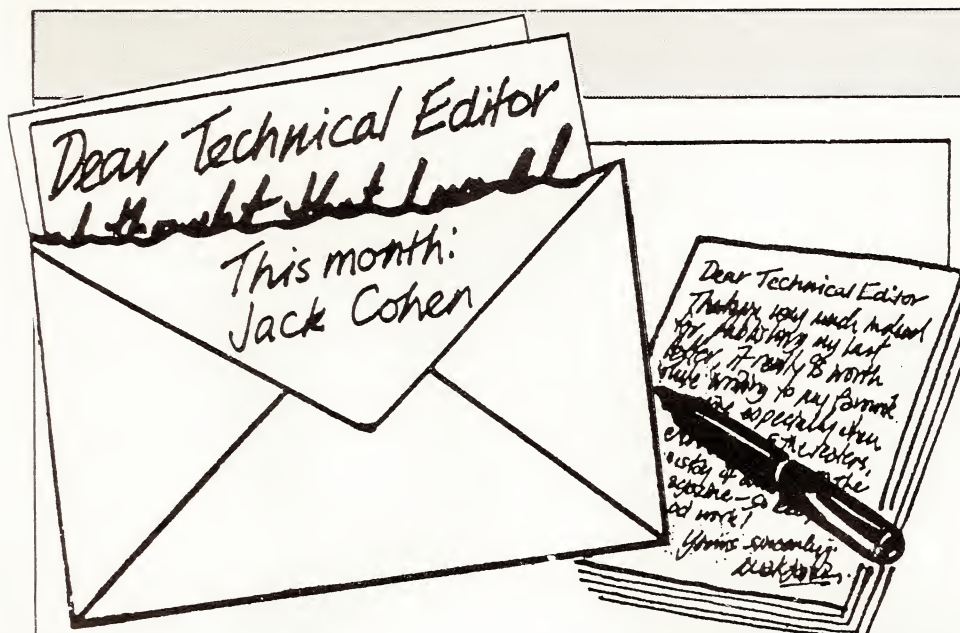 Dear Technical Editor
I thought that I would
This month:
Jack Cohen
Dear Technical Editor
Thank you very much indeed
for publishing my last
letter, it really is worth
while writing to my favourite
especially when
the
work!
Yours sincerely